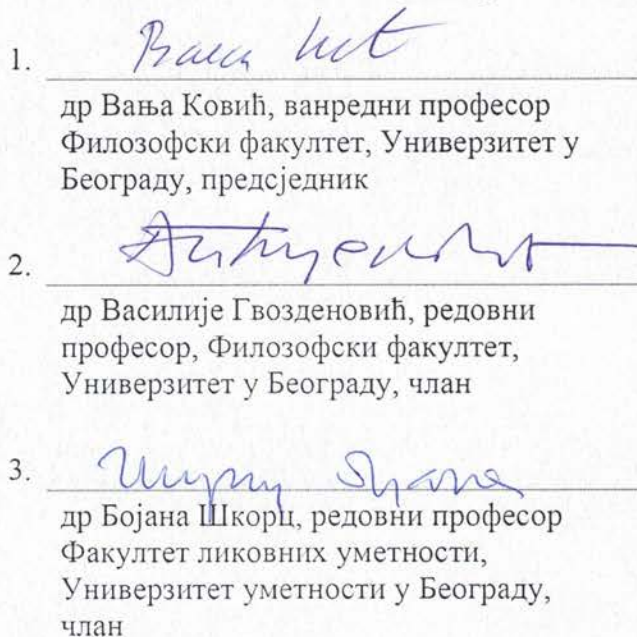 1.
др Вања Ковић, ванредни професор
Филозофски факултет, Универзитет у
Београду, предсједник
2.
др Василије Гвозденовић, редовни
професор, Филозофски факултет,
Универзитет у Београду, члан
3.
др Бојана Шкорц, редовни професор
Факултет ликовних уметности,
Универзитет уметности у Београду,
члан